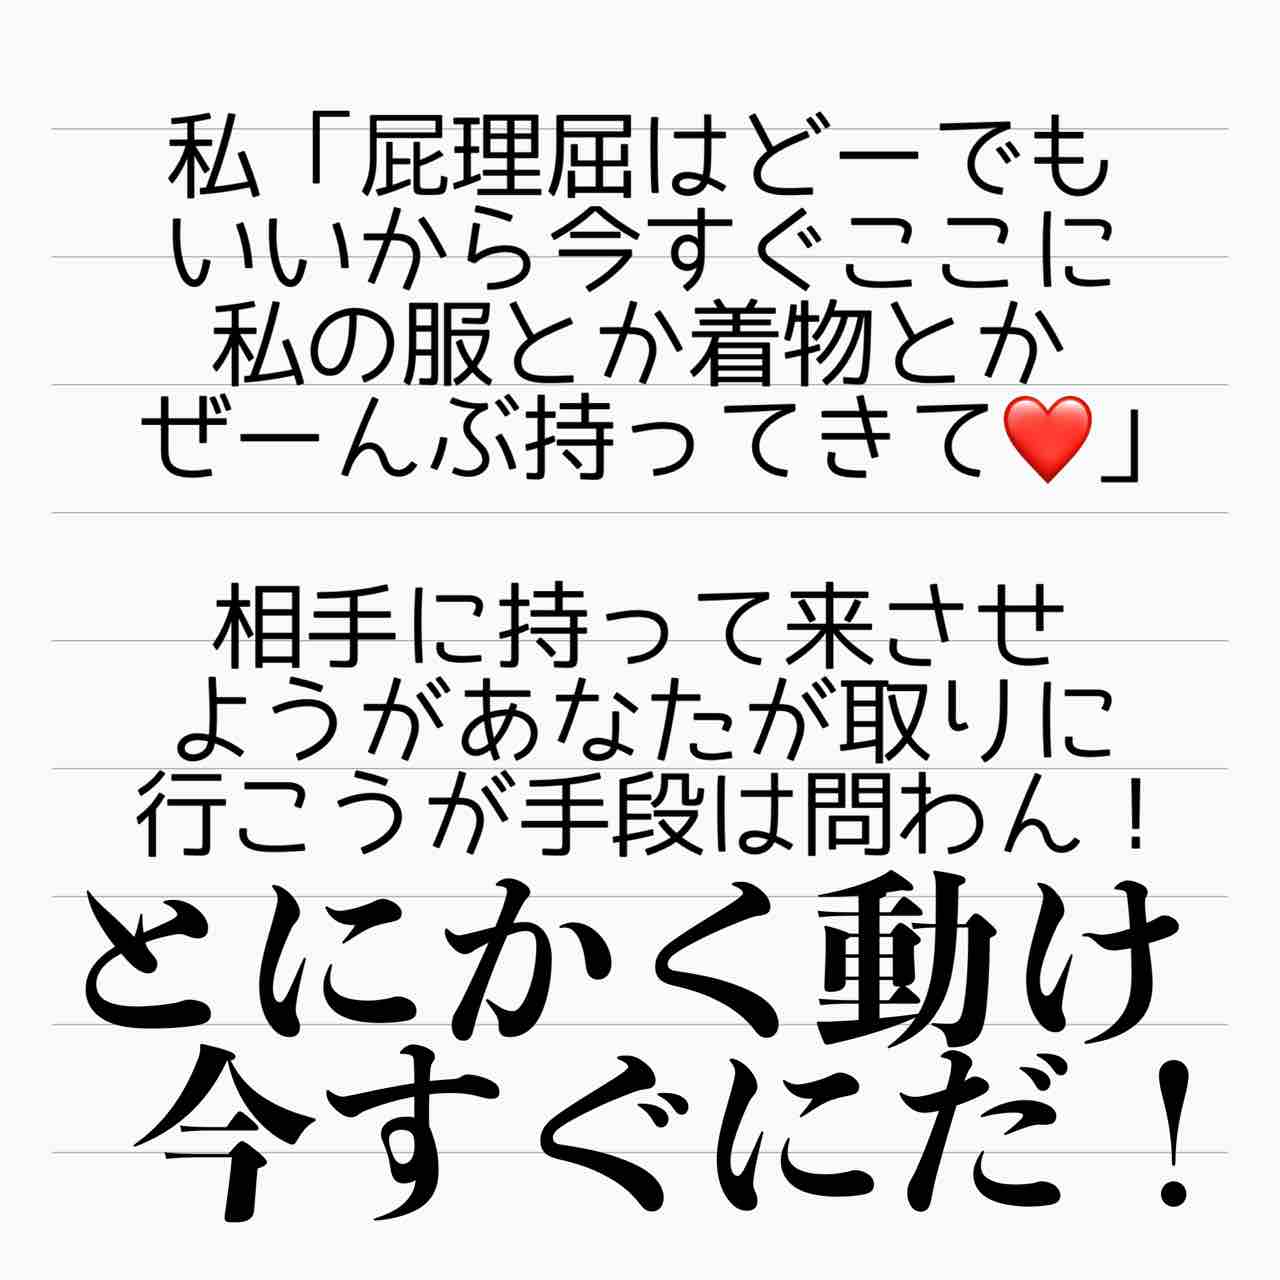 私「屁理屈はどーでも
いいから今すぐここに
私の服とか着物とか
ぜーんぶ持ってきて❤️」
相手に持って来させ
ようがあなたが取りに
行こうが手段は問わん！
とにかく動け
今すぐにだ！